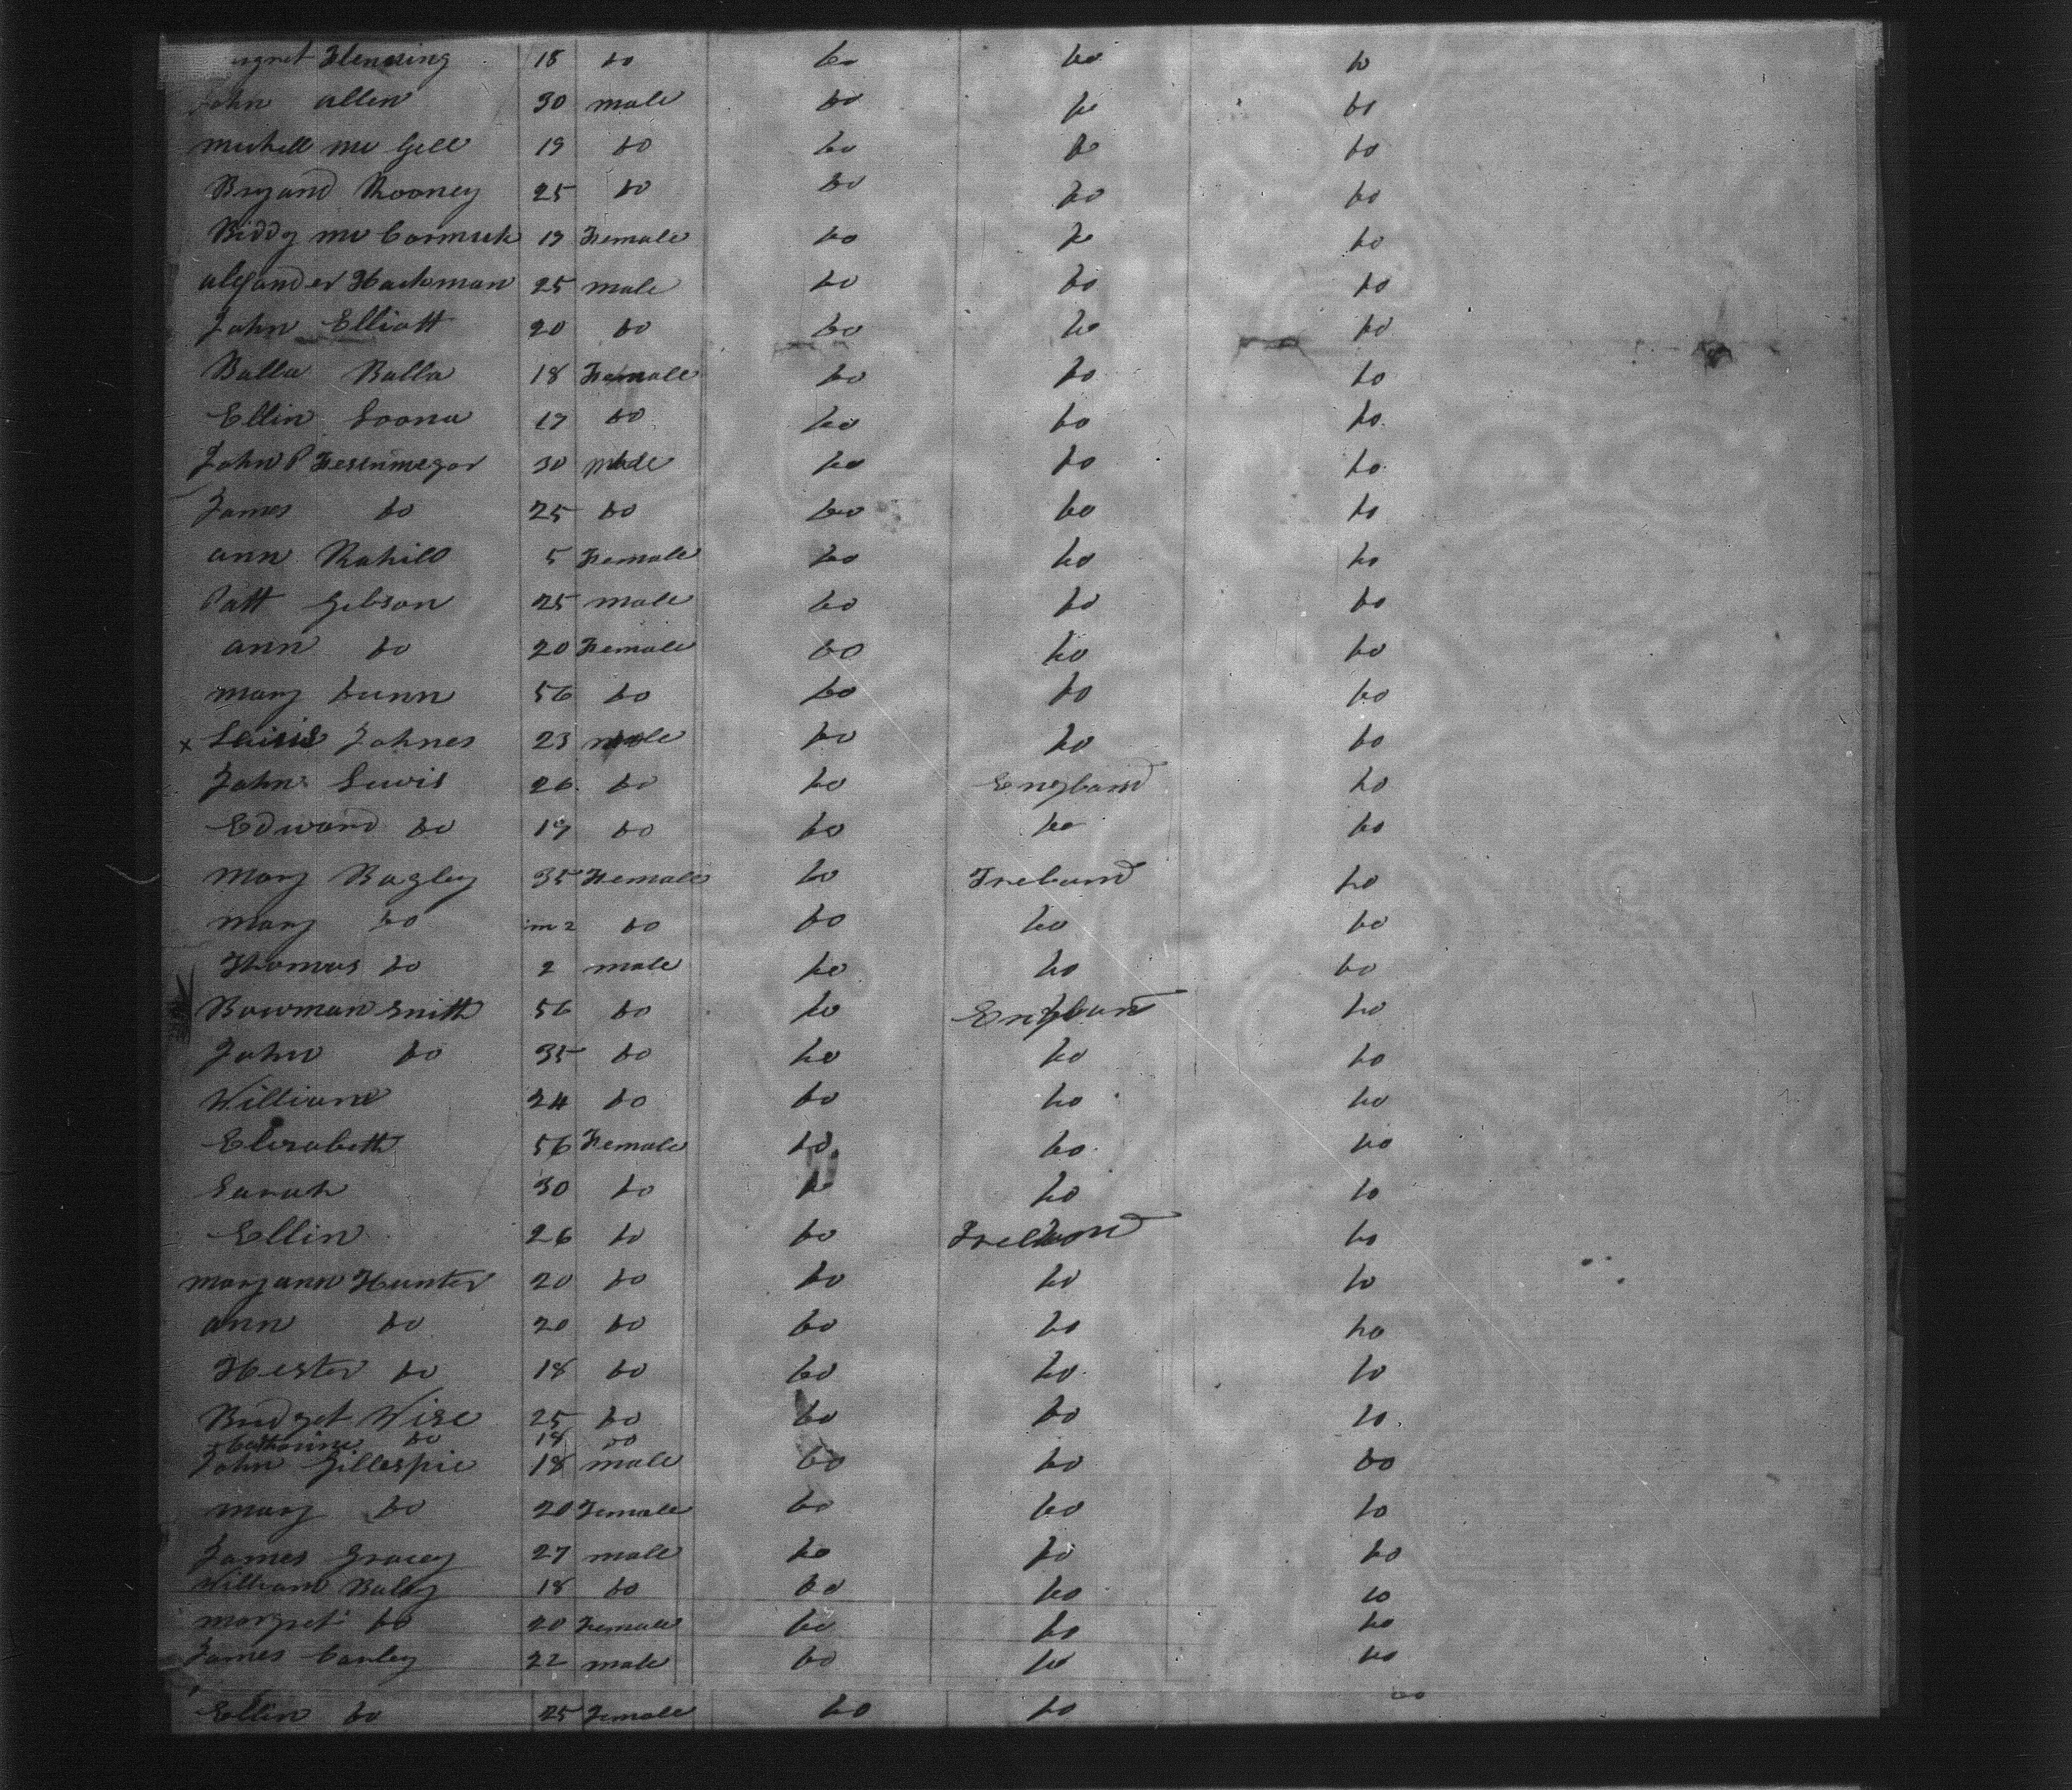 Flemming 18 do do do do
John allen 30 male do do do
michell mc Gill 19 do do do do
Bryand Rooney 25 do do do do
Biddy mc Cormick 19 Female do do do
alexander Hackman 25 male do do do
John Elliott 20 do do do do
Balla Balla 18 Female do do do
Ellin Loona 17 do do do do
John P 30 male do do do
James do 25 do do do do
ann Rahill 5 Female do do do
Patt Gibson 25 male do do do
ann do 20 Female do do do
mary dunn 56 do do do do
x Johnes 23 male do do do
John Lewis 26 do do England do
Edward do 19 do do do do
mary Bagley 35 Female do Ireland do
mary do m 2 do do do do
Thomas do 2 male do do do
Bowman Smith 56 do do England do
John do 35 do do do do
William 24 do do do do
Elizabeth 56 Female do do do
Sarah 30 do do do do
Ellin 26 do do Ireland do
mary ann Hunter 20 do do do do
ann do 20 do do do do
Hester do 18 do do do do
Bridget Wise 25 do do do do
Catharine do 18 do
John Gillespie 18 male do do do
mary do 20 Female do do do
James Gracey 27 male do do do
William Baley 18 do do do do
margret do 20 Female do do do
James Canley 22 male do do do
Ellin do 25 Female do do do